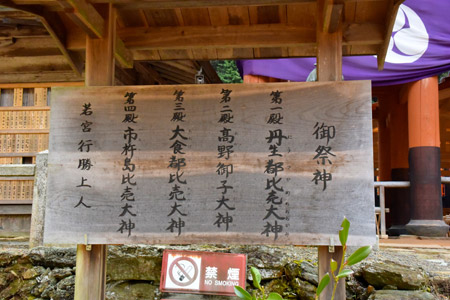 御祭神
第一殿 丹生都比売大神
第二殿 高野御子大神
第三殿 大食都比売大神
第四殿 市杵島比売大神
若宮 行勝上人
禁煙
NO SMOKING